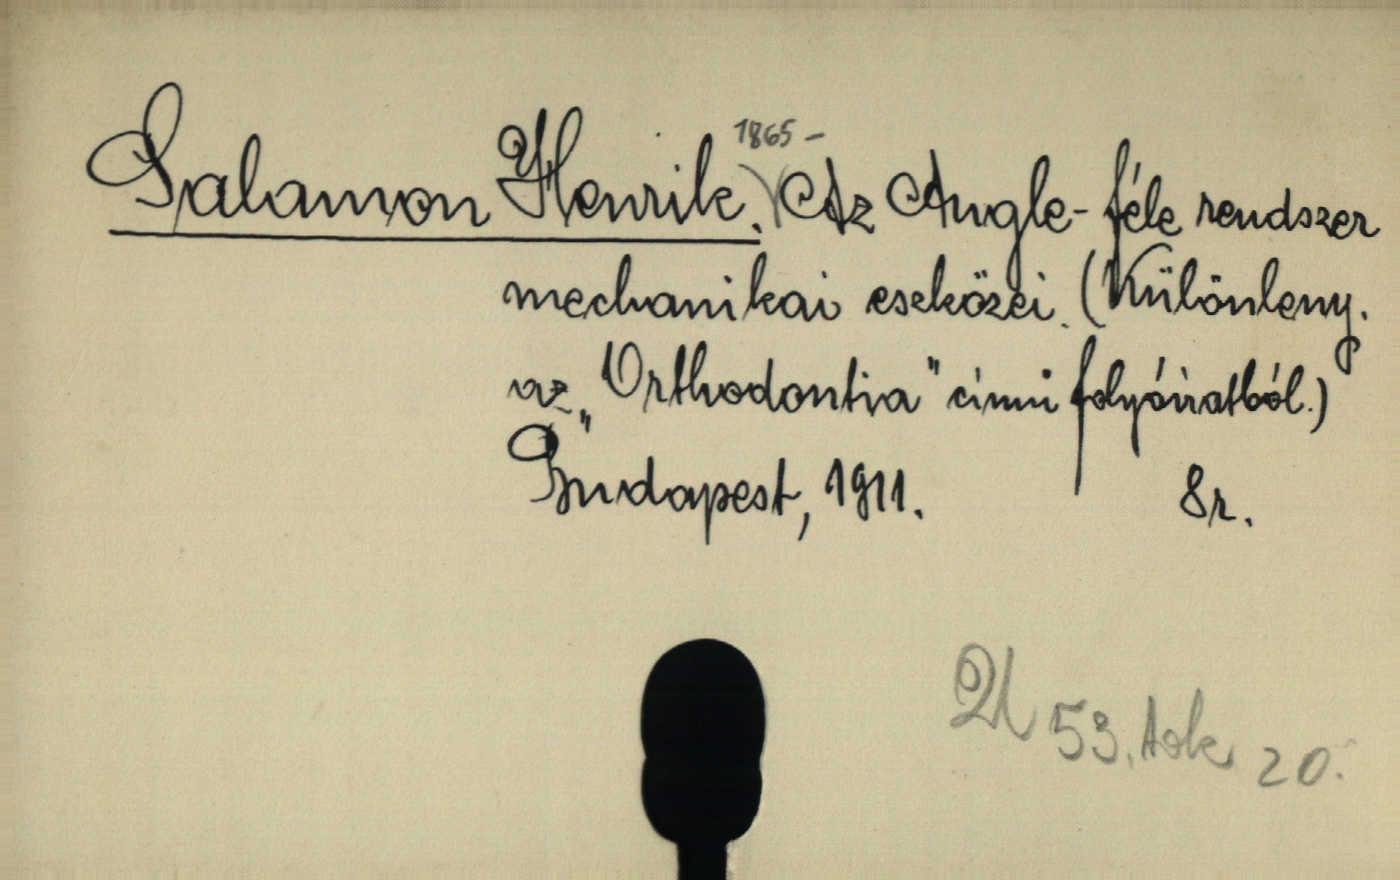 1865 -
Salamon Henrik. Az Angle-féle rendszer
mechanikai eszközei. (Különleny.
az „Orthodontia" cimü folyóiratból.)
Budapest, 1911. 8r.
U 53. tok 20.